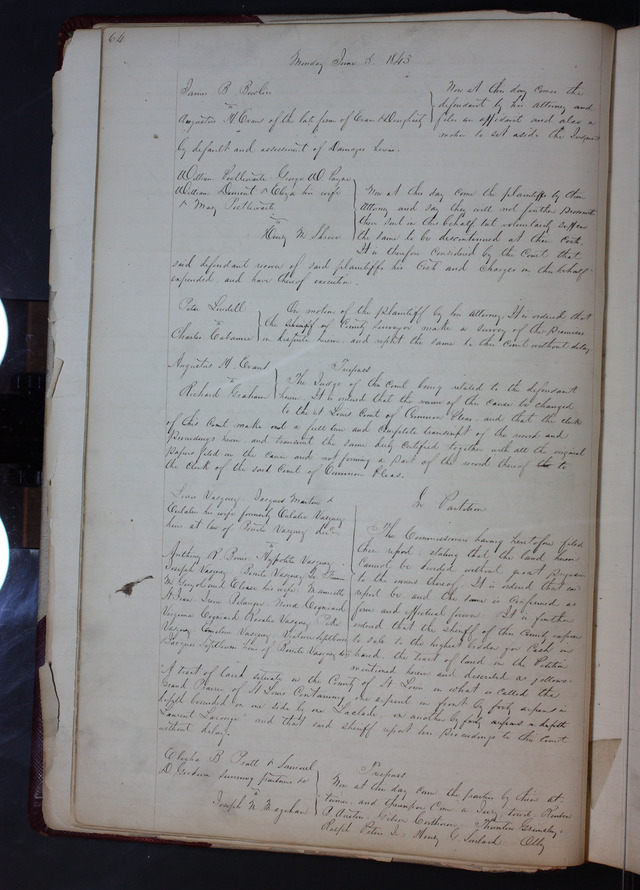 64
Monday June 5 1843
James B Bowlin
vs
Augustus H Evans of the late firm of Evans & Dougherty
Now at this day comes the
defendant by his attorney and
files an affidavit and also a
motion to set aside the Judgment
by default and assessment of Damages herein.
William Postlewaite George W
William & Eliza his wife
& Mary Postlewaite
vs
Henry M Shreve
Now at this day come the plaintiffs by their
attorney and say they will not further prosecute
their suit in this behalf but voluntarily suffer
the same to be discontinued at their Costs.
It is therefore considered by the Court that
said defendant recover of said plaintiffs his Costs and Charges in this behalf
expended and have thereof execution.
Peter Lindell
vs
Charles Cabanne
On motion of the plaintiff by his attorney It is ordered that
the Sheriff of County Surveyor make a survey of the premises
in dispute herein and report the same to this Court without delay
Augustus H. Evans
vs
Richard Graham
Trespass
The Judge of this Court being related to the defendant
herein. It is ordered that the venue of this cause be changed
to the St Louis Court of Common Pleas, and that the clerk
of this Court make out a full true and complete transcript of the record and
Proceedings herein and transmit the same duly certified together with all the original
papers filed in the cause and not forming a part of the record thereof to
the clerk of the said Court of Common Pleas.
Vasquez
his wife formerly Vasquez
heirs at law of Benito Vasquez
vs
Anthony R. Hypolite Vasquez
Joseph Vasquez Benito Vasquez
his wife
Rosalie Vasquez
Vasquez Vasquez
heirs of Benito Vasquez
In Partition
The Commissioners having heretofore filed
their report stating that the land herein
cannot be divided without great prejudice
to the owners thereof; It is ordered that said
report be and the same is confirmed as
firm and effectual forever. It is further
ordered that the sheriff of this County expose
to sale to the highest bidder for Cash in
hand, the tract of land in the Petition
mentioned herein and described as follows:
A tract of land situate in the County of St Louis in what is called the
Grand Prairie of St Louis Containing one arpent in front by forty arpens in
depth bounded on one side by on another by forty arpens in depth
Laurent and that said sheriff report his proceedings to this Court
without delay.
Elisha B Pratt & Samuel
D surviving partners &c
vs
Joseph W
Trespass
Now at this day come the parties by their at-
torneys, and thereupon Came a Jury, towit,
P Austin, Gideon Thornton Grimsley,
Ralph Peter Jr Henry G